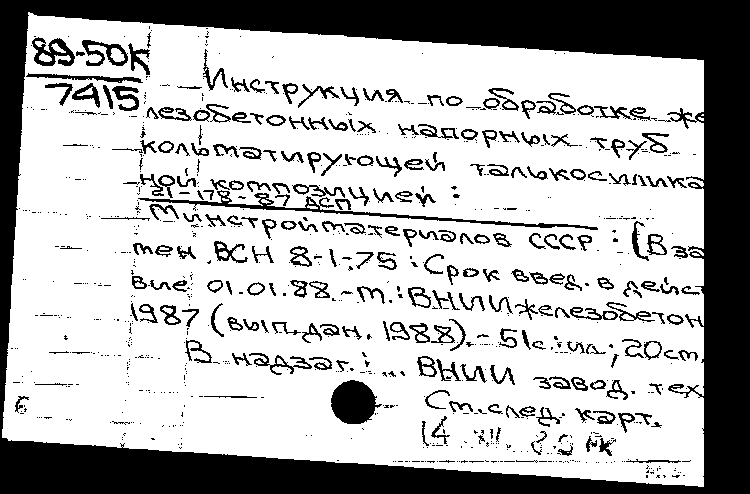 89-50К
7415
Инструкция по обработке же
лезобетонных напорных труб
кольматирующей талькосилика
ной композицией :
21-178-87 АСП
Минстройматериалов СССР : (Вза
мен ВСН 8-1-75 : Срок введ. в дейст
вие 01.01.88.-М.: ВНИИжелезобетон
1987 (вып.дан. 1988).- 51с.:ил; 20см.
В надзаг.: ... ВНИИ завод. тех
Ст.след. карт.
14 XII. 89
6